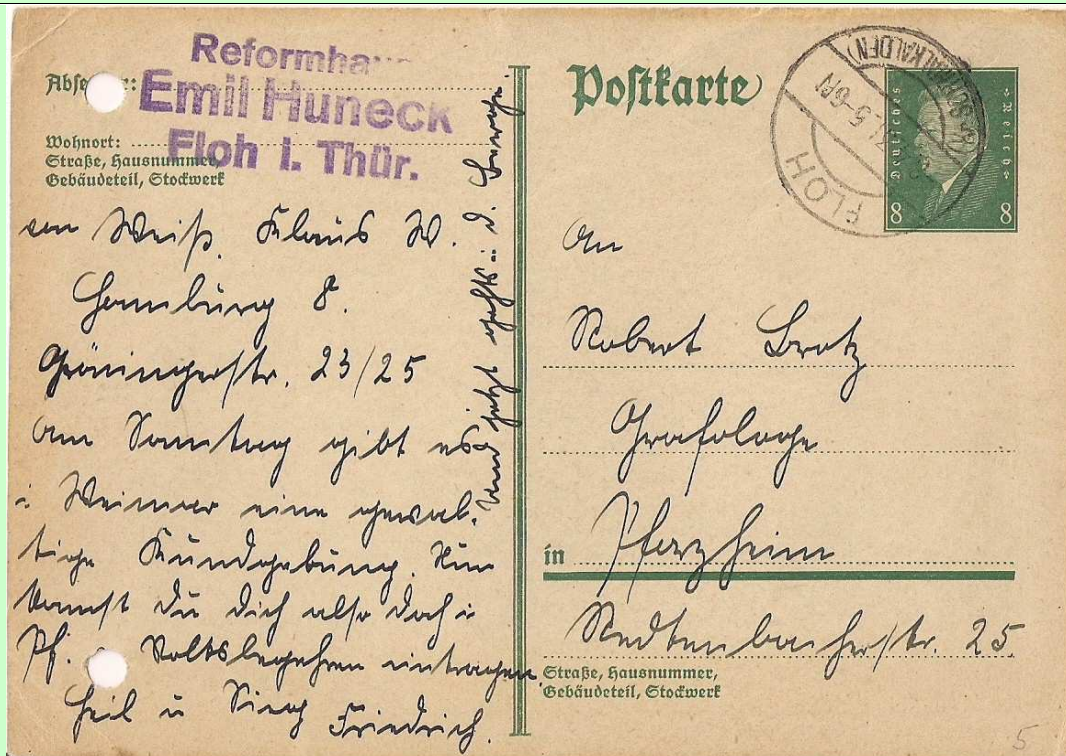 Reformhaus
Emil Huneck
Floh i. Thür.
Wohnort:
Straße, Hausnummer,
Gebäudeteil, Stockwerk
von Weiß. Klaus W.
Hamburg 8.
Gröningerstr. 23/25
Am Sonntag gibt es
i Weimar eine gewal-
tige Kundgebung. Nun
kannst Du Dich also doch i
Pf. Volksbegehren eintragen.
Heil u Sieg Friedrich.
Und jetzt gehts i. d.
Postkarte
FLOH
Deutsches
Reich
8 8
An
Robert Brotz
Grafologe
in Pforzheim
Redtenbacherstr. 25.
Straße, Hausnummer,
Gebäudeteil, Stockwerk
5